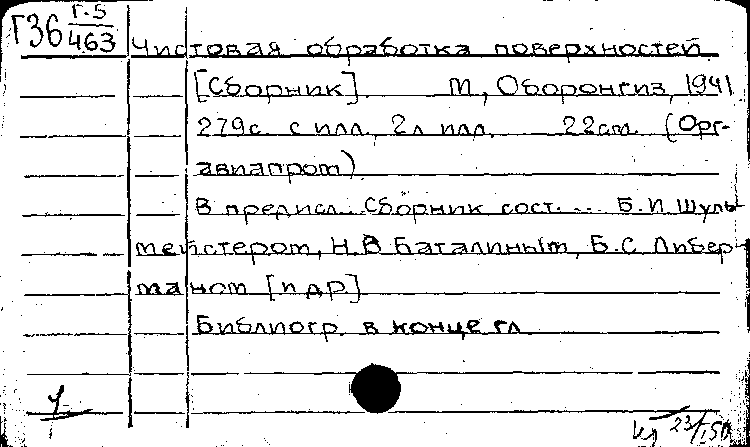 Г36 Г.5
463
Чистовая обработка поверхностей.
[Сборник]. М., Оборонгиз, 1941
279с. с илл., 2л илл. 22см. (Орг-
авиапром)
В предисл.: Сборник сост. ... Б.И Шуль-
мейстером, Н.В Баталиным, Б.С Либер-
маном [и др.]
Библиогр. в конце гл
23/I.50